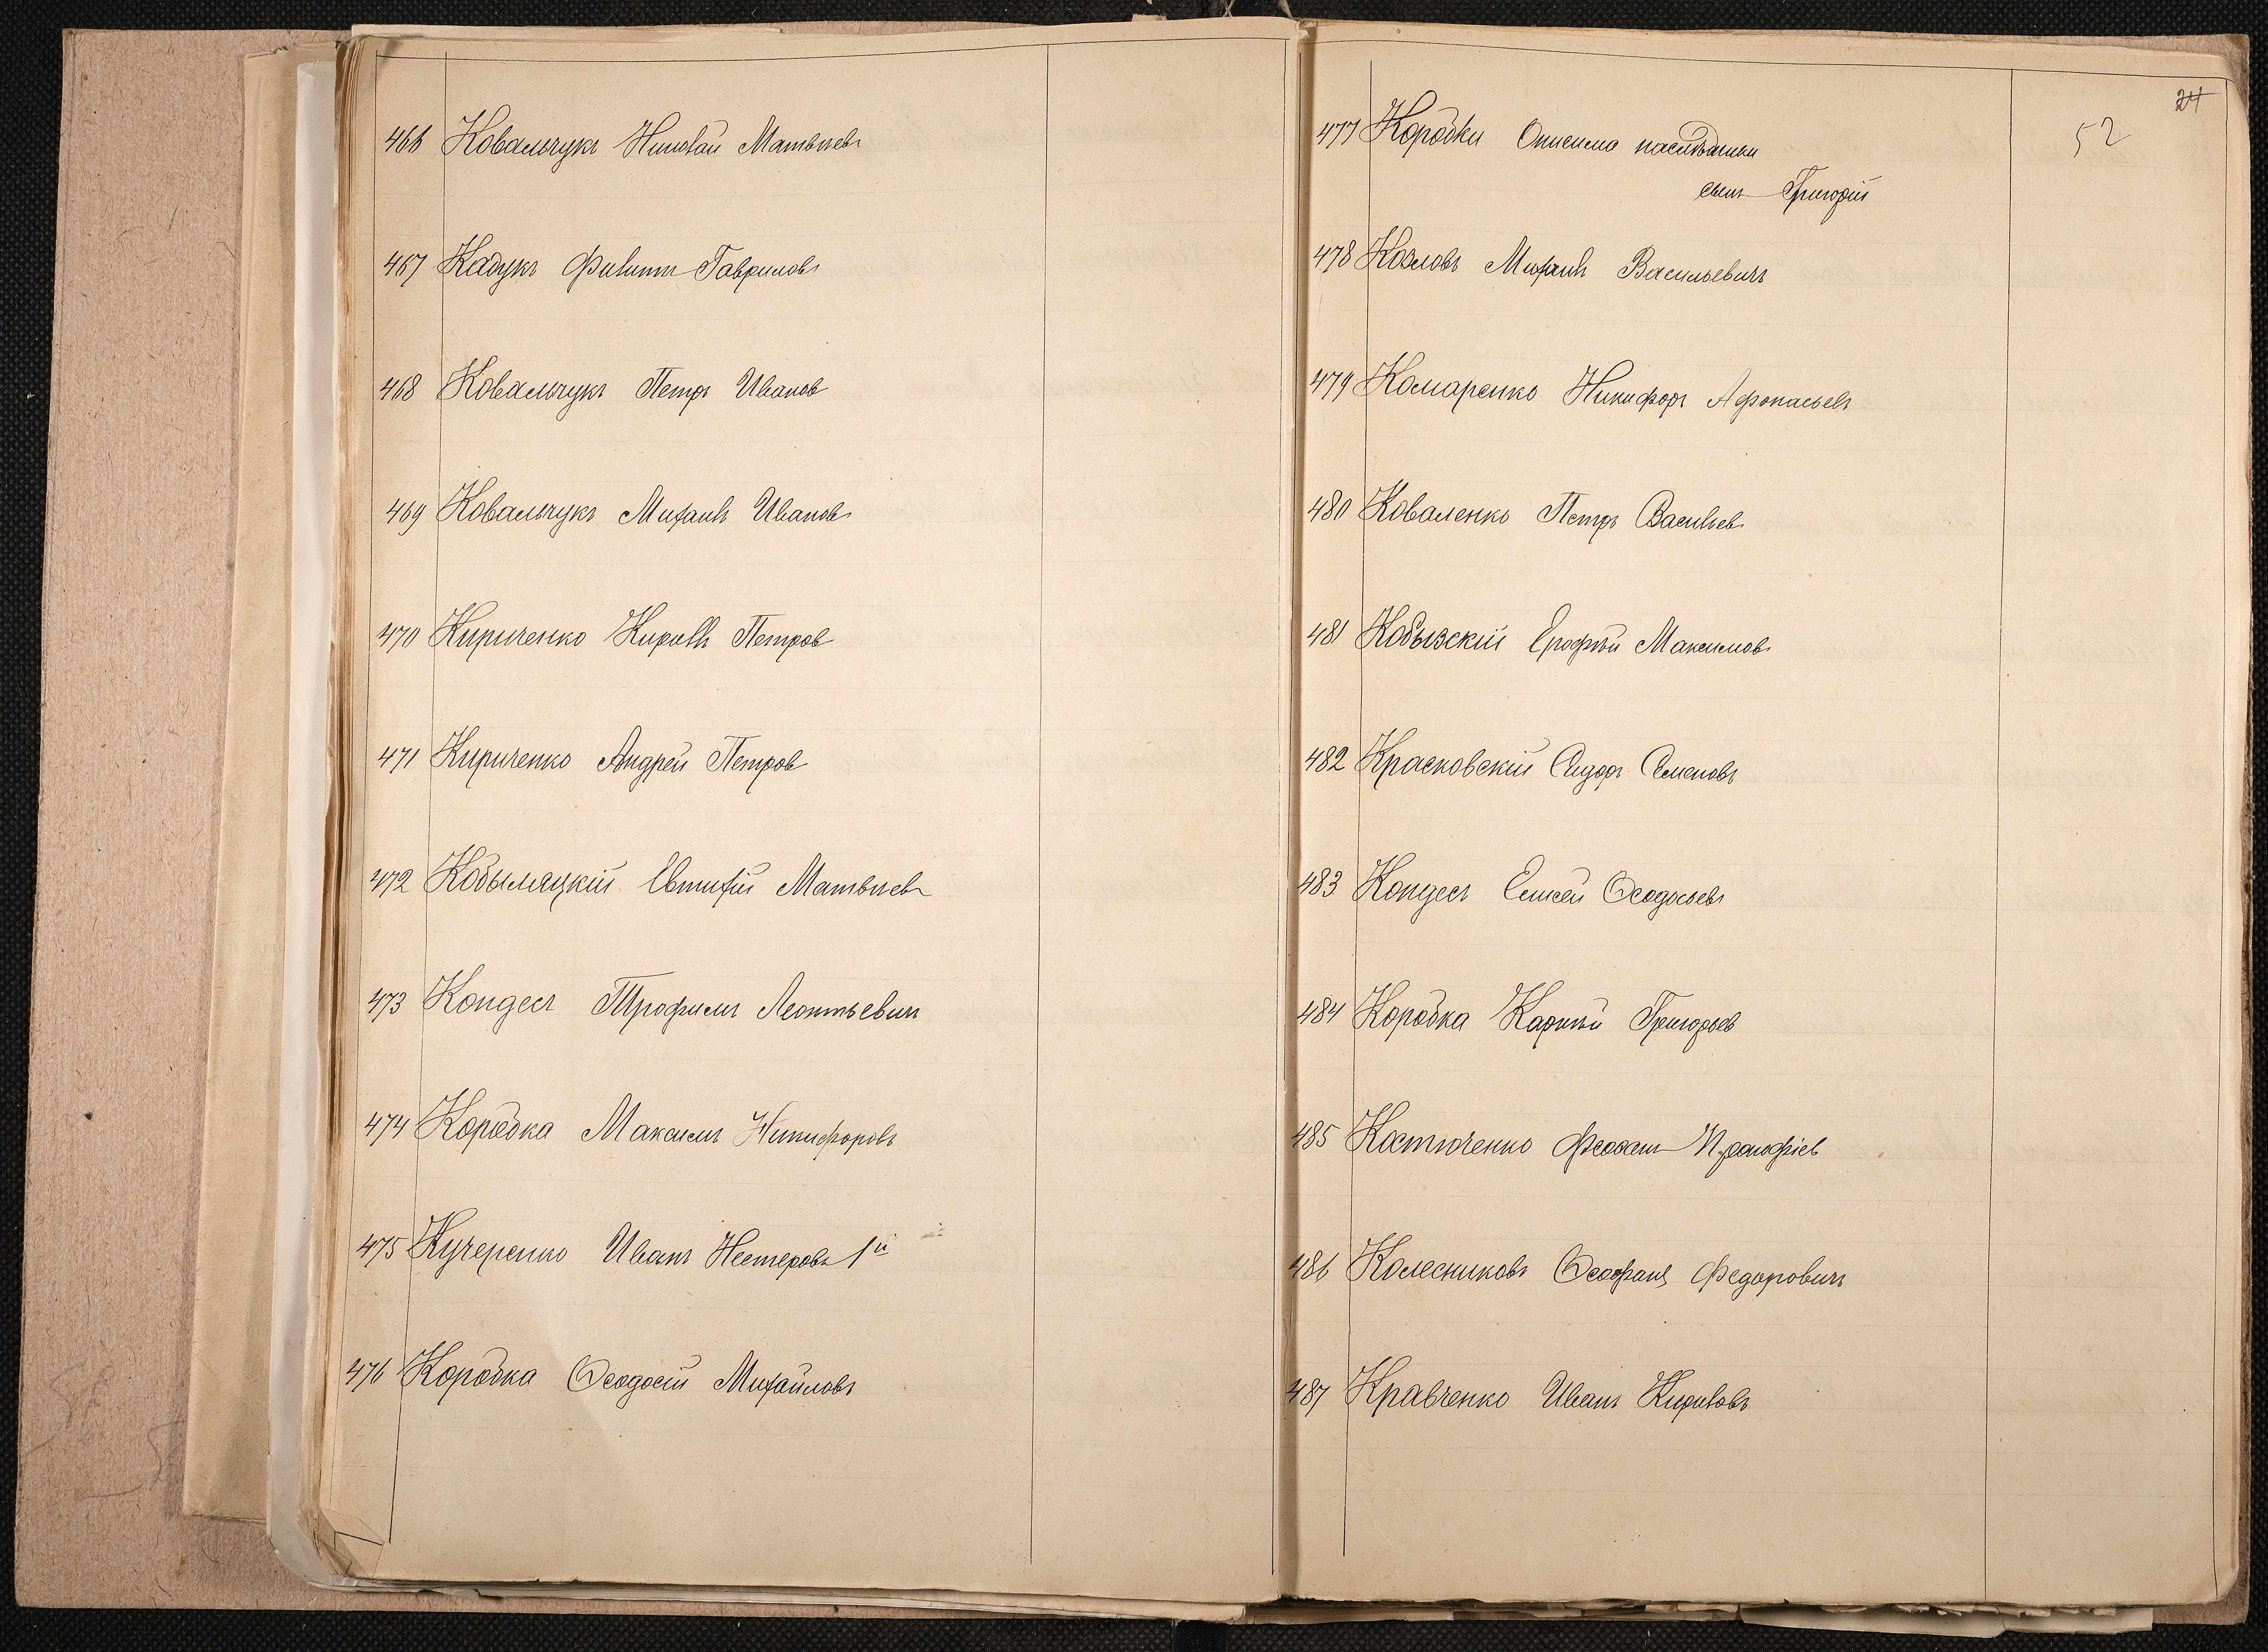 466 Ковальчукъ Николай Матвѣевъ
467 Кадукъ Филипп Гавриловъ
468 Ковальчукъ Петръ Иванов
469 Ковальчукъ Михаилъ Ивановъ
470 Кириченко Кирилъ Петров
471 Кириченко Андрей Петров
472 Кобыляцкій Евтифій Матвѣевъ
473 Кондесъ Трофимъ Леонтьевич
474 Коробка Максимъ Никифоровъ
475 Кучеренко Иванъ Нестеровъ 1й
476 Коробка Ѳеодосій Михайловъ
24
52
477 Коробки Онисима наслѣдники
сынъ Григорій
478 Козловъ Михаилъ Васильевичъ
479 Комаренко Никифоръ Афонасьевъ
480 Коваленко Петръ Васильевъ
481 Кобызскій Ерофѣй Максимовъ
482 Красковскій Сидоръ Семеновъ
483 Кондесъ Елисей Ѳеодосьевъ
484 Коробка Карпѣй Григорьев
485 Костюченко Прокофіев
486 Колесниковъ Ѳеофанъ Федоровичъ
487 Кравченко Иванъ Кириловъ